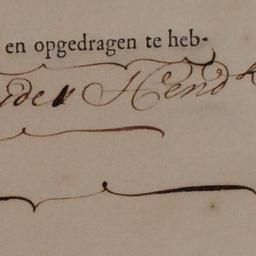 en opgedragen te heb-
Hendk